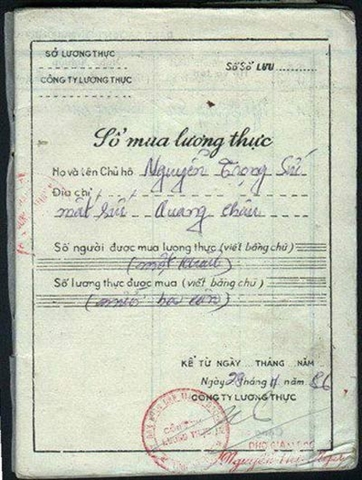 SỞ LƯƠNG THỰC
Số Sổ LƯU
CÔNG TY LƯƠNG THỰC
Sổ mua lương thực
Họ và tên Chủ hộ Nguyễn Trọng
Địa chỉ
Quang Châu
Số người được mua lương thực (viết bằng chữ)
(một
Số lương thực được mua (viết bằng chữ)
KỂ TỪ NGÀY THÁNG NĂM
Ngày 29 tháng 11 năm 86
CÔNG TY LƯƠNG THỰC
CÔNG TY
LƯƠNG THỰC
PHÓ GIÁM ĐỐC
Nguyễn